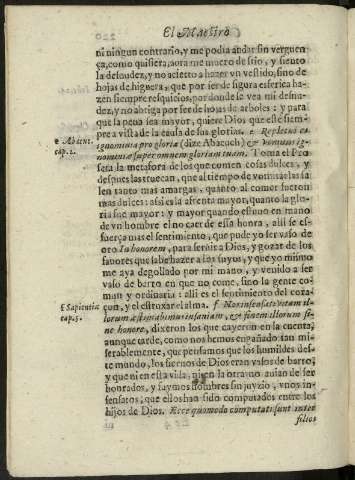 El Maestro
ni ningun contrario, y me podia andar sin verguen-
ça, como quisiera, aora me muero de frio, y siento
la desnudez, y no acierto a hazer vn vestido, sino de
hojas de higuera, que por ser de figura esferica ha-
zen siempre resquicios, por donde se vea mi desnu-
dez, y no abriga por ser de hojas de arboles: y para
que la pena sea mayor, quiere Dios que este siem-
pre a vista de la causa de sus glorias. e Repletus es
e Abacuc.
ignominia pro gloria (dize Abacuch) & vomitus ig-
cap. 2.
nominiæ super omnem gloriam tuam. Toma el Pro
feta la metafora de los que comen cosas dulces, y
despues las truecan, que al tiempo de vomitarlas sa
len tanto mas amargas, quanto al comer fueron
mas dulces: assi es la afrenta mayor, quanto la glo-
ria fue mayor: y mayor quando estuuo en mano
de vn hombre el no caer de essa honra, alli se es-
fuerça mas el sentimiento, que pude yo ser vaso de
oro In honorem, para seruir a Dios, y gozar de los
fauores que sabe hazer a los suyos, y que yo mismo
me aya degollado por mi mano, y venido a ser
vaso de barro en que no come, sino la gente co-
mun y ordinaria: alli es el sentimiento del cora-
f Sapientiæ
çon, y el estruxar el alma. f Nos insensati vitam il-
cap. 5.
lorum æstimabamus insaniam, & finem illorum si-
ne honore, dixeron los que cayeron en la cuenta,
aunque tarde, como nos hemos engañado tan mi-
serablemente, que pensamos que los humildes des-
te mundo, los sieruos de Dios eran vasos de barro,
y que ni en esta vida, ni en la otra no auian de ser
honrados, y fuymos hombres sin juyzio, vnos in-
sensatos, que ellos han sido computados entre los
hijos de Dios. Ecce quomodo computati sunt inter
filios